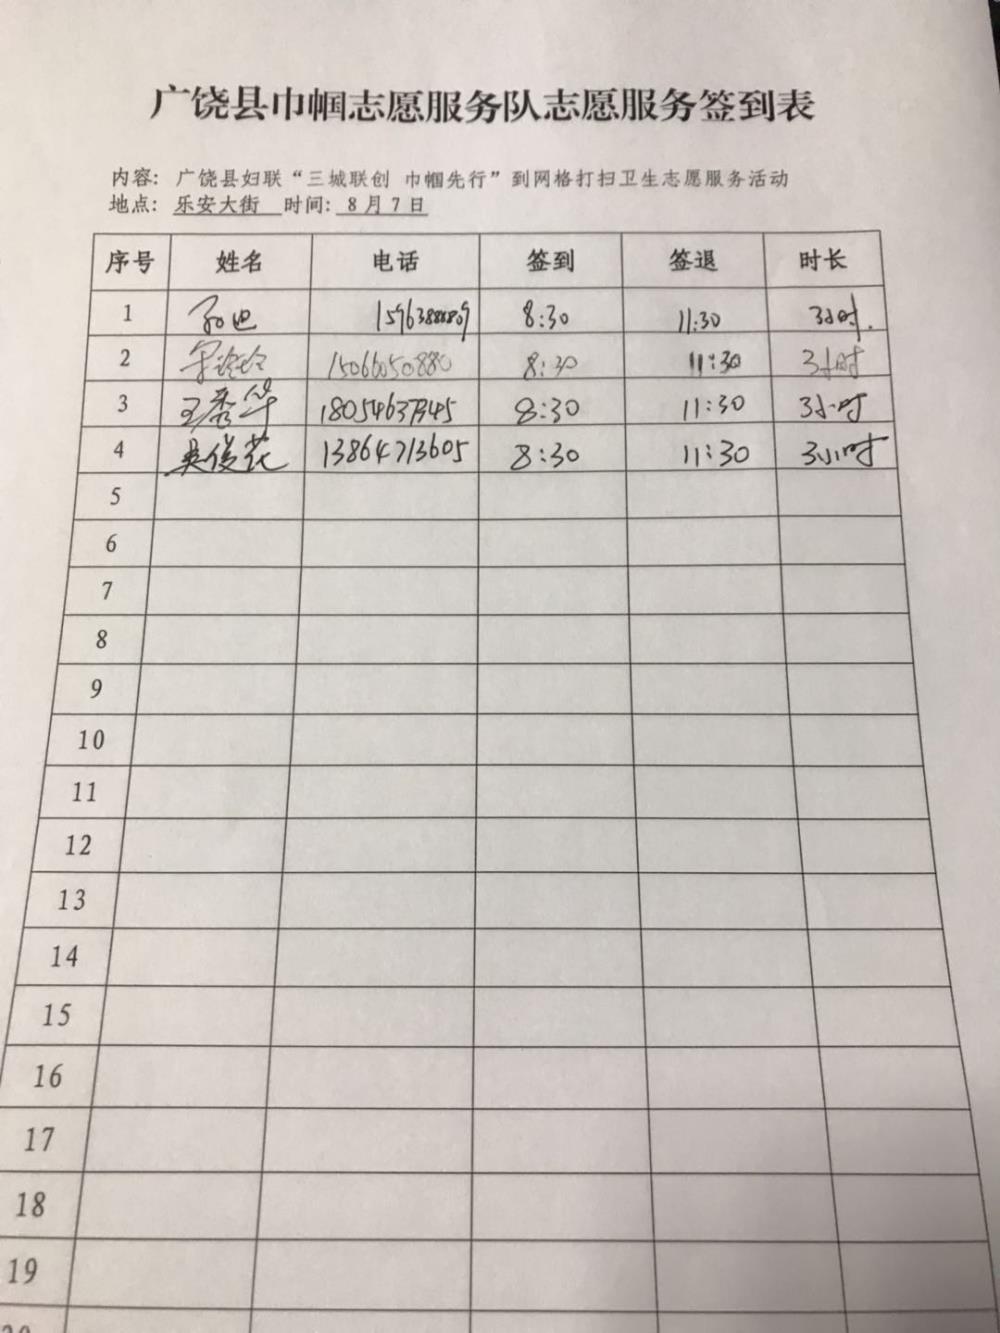 广饶县巾帼志愿服务队志愿服务签到表
内容: 广饶县妇联“三城联创 巾帼先行”到网格打扫卫生志愿服务活动
地点: 乐安大街 时间: 8月7日
序号 姓名 电话 签到 签退 时长
1 8:30 11:30 3小时.
2 宋玲玲 15066050880 8:30 11:30 3小时
3 王秀华 8:30 11:30 3小时
4 吴俊花 13864713605 8:30 11:30 3小时
5
6
7
8
9
10
11
12
13
14
15
16
17
18
19